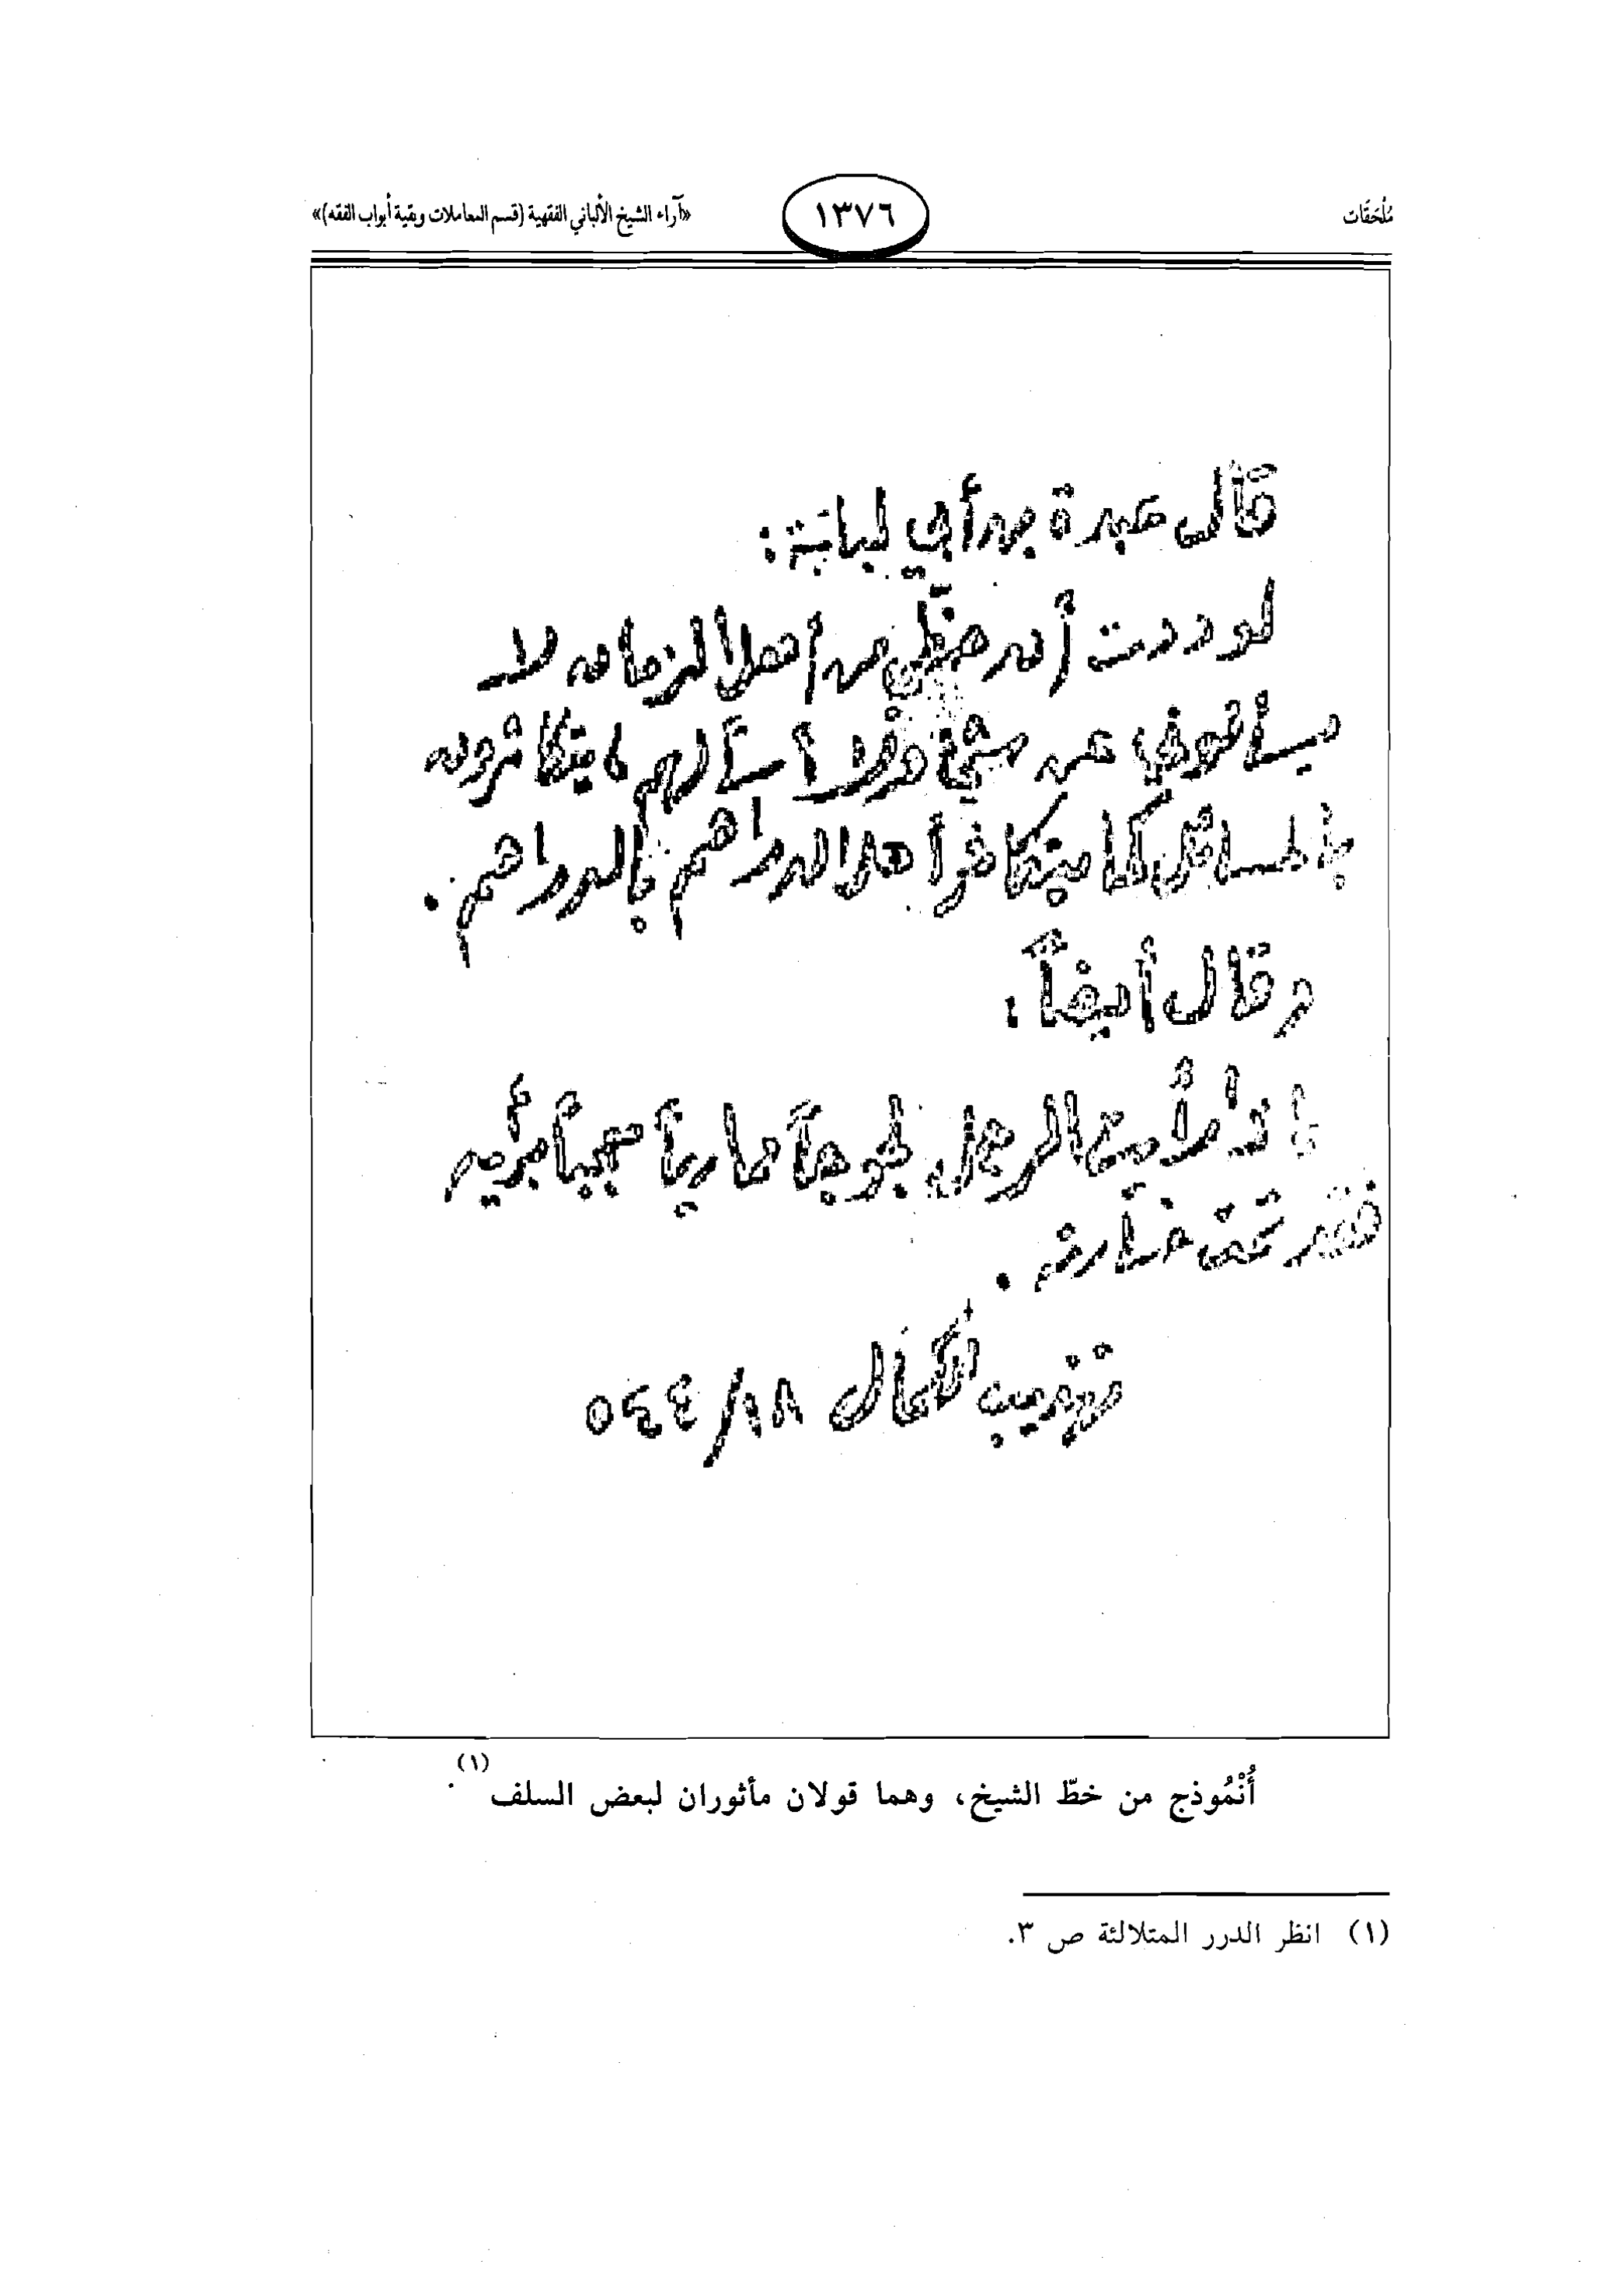 مُلْحَقَات
١٣٧٦
«آراء الشيخ الألباني الفقهية (قسم المعاملات وبقية أبواب الفقه)»
قال عبدة بن أبي لبابة:
لوددت أن حظي من أهل الزمان لا
يسألوني عن شيء ولا أسألهم يتكاثرون
بالمسائل كما يتكاثر أهل الدراهم بالدراهم.
وقال أيضاً:
إذا رأيت الرجل لجوجاً ممارياً معجباً برأيه
فقد تمت خسارته.
تهذيب الكمال ١٨/ ٥٤٤
أُنْمُوذج من خطّ الشيخ، وهما قولان مأثوران لبعض السلف(١).
(١) انظر الدرر المتلالئة ص ٣.